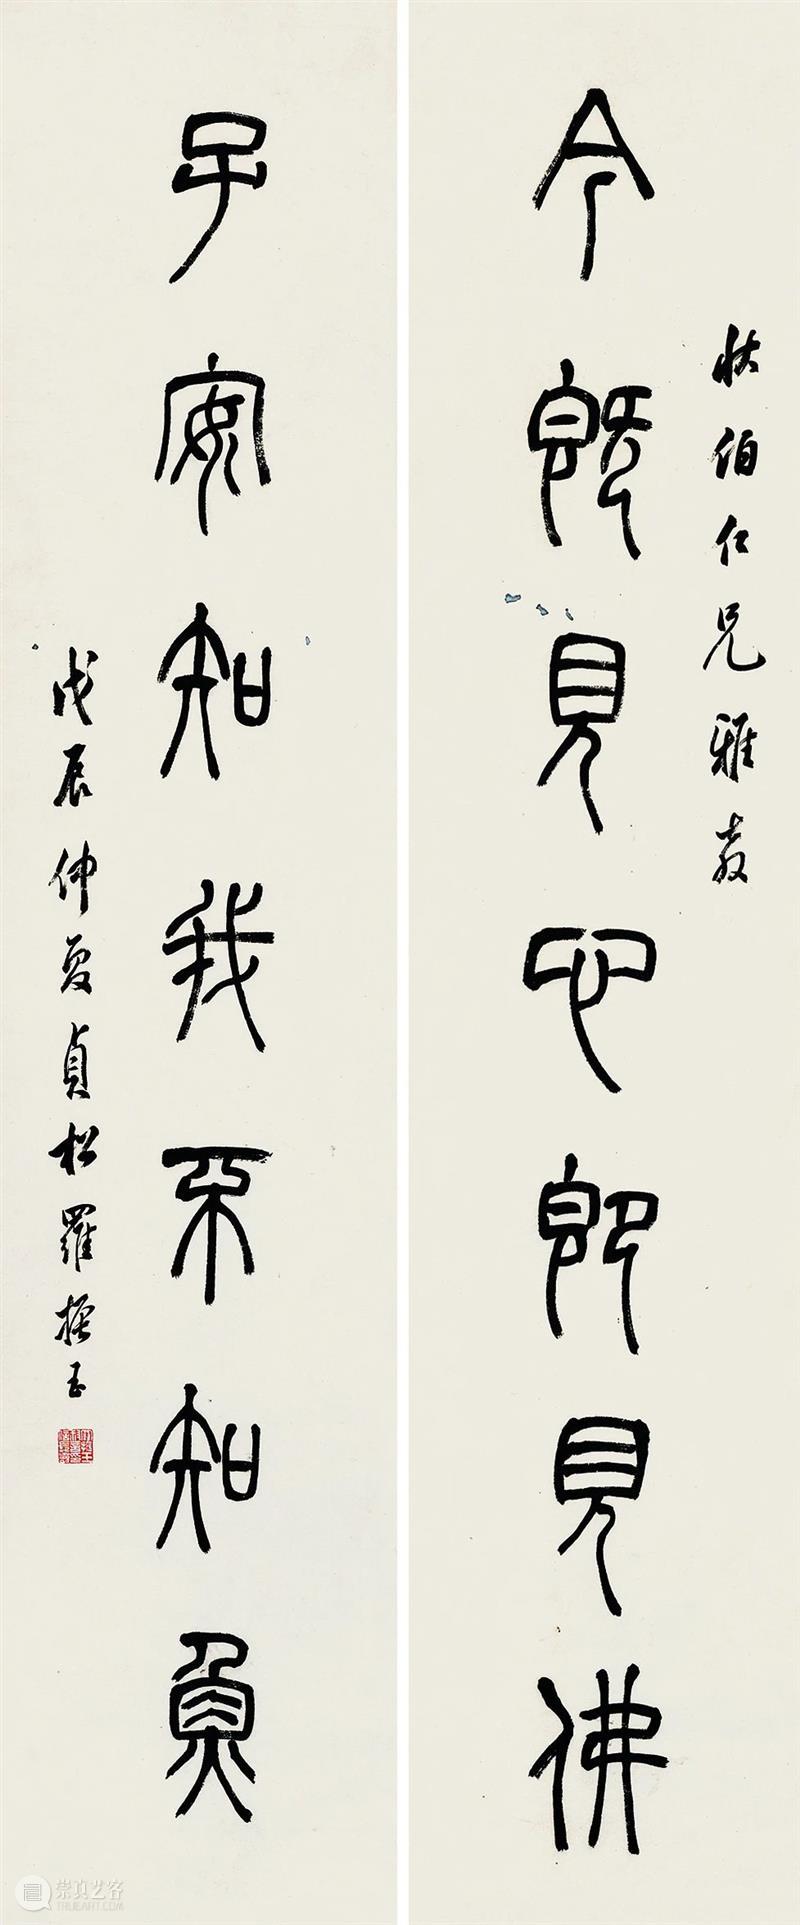 伯仁兄雅教
今既見心即見佛
子安知我不知魚
戊辰仲夏貞松羅振玉
崇真艺客
TRUEART.COM